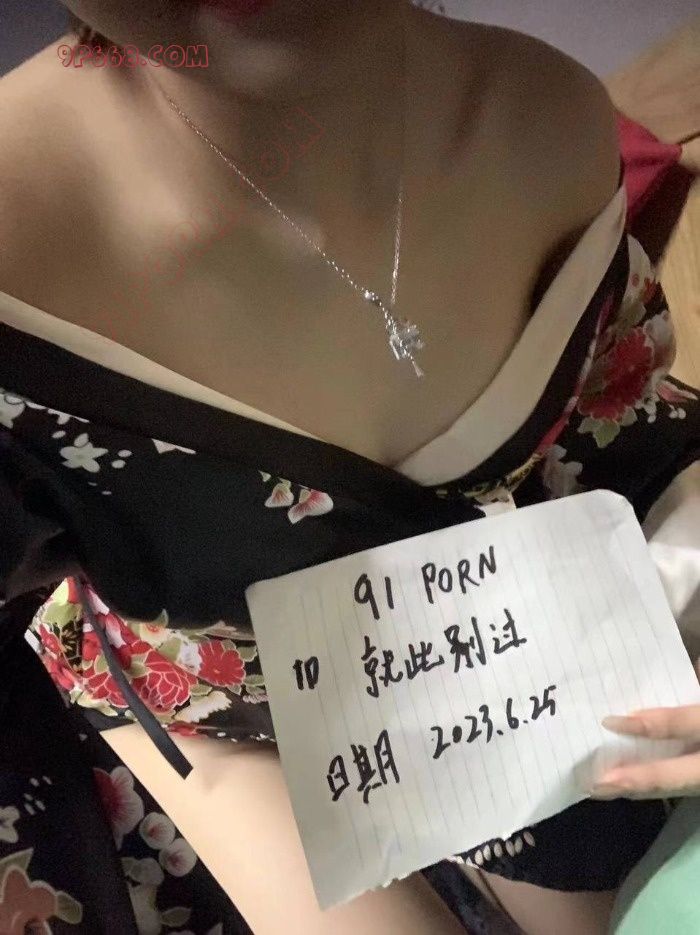 9P668.COM
91PORN.COM
91 PORN
ID 就此别过
日期 2023.6.25